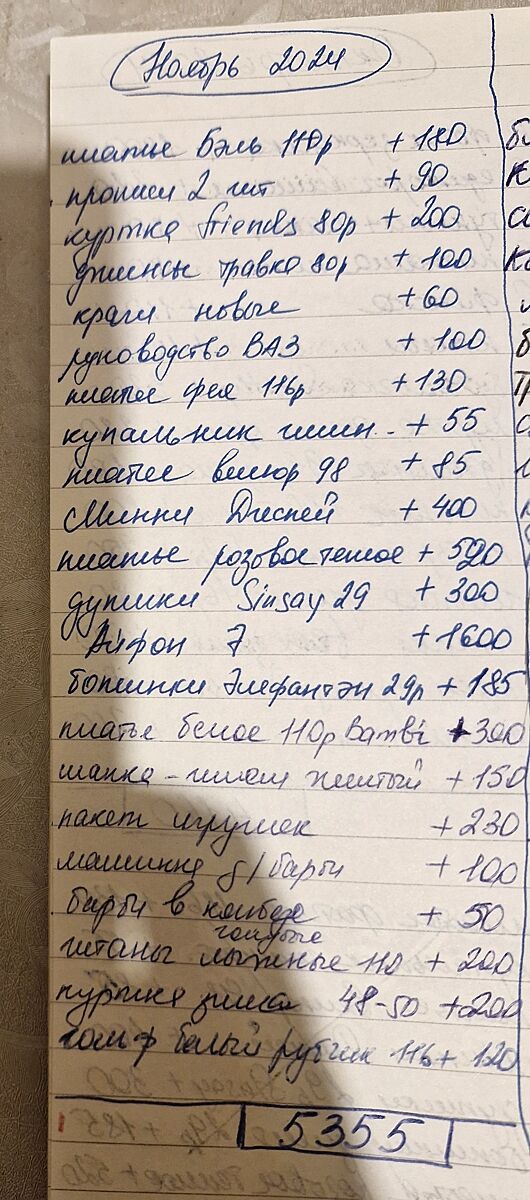 Ноябрь 2024
платье Бэль 110р + 180
прописи 2 шт + 90
куртка friends 80р + 200
джинсы травка 80р + 100
краги новые + 60
руководство ВАЗ + 100
платье фея 116р + 130
купальник + 55
платье велюр 98 + 85
Минни Дисней + 400
платье розовое теплое + 520
дутики Sinsay 29 + 300
Айфон 7 + 1600
ботинки Элефантэн 29р + 185
платье белое 110р Bambi + 300
шапка-шлем желтый + 150
пакет игрушек + 230
машинка д/барби + 100
барби в комбезе + 50
голубые
штаны лыжные 110 + 200
куртка зима 48-50 + 200
гольф белый рубчик 116 + 120
5355